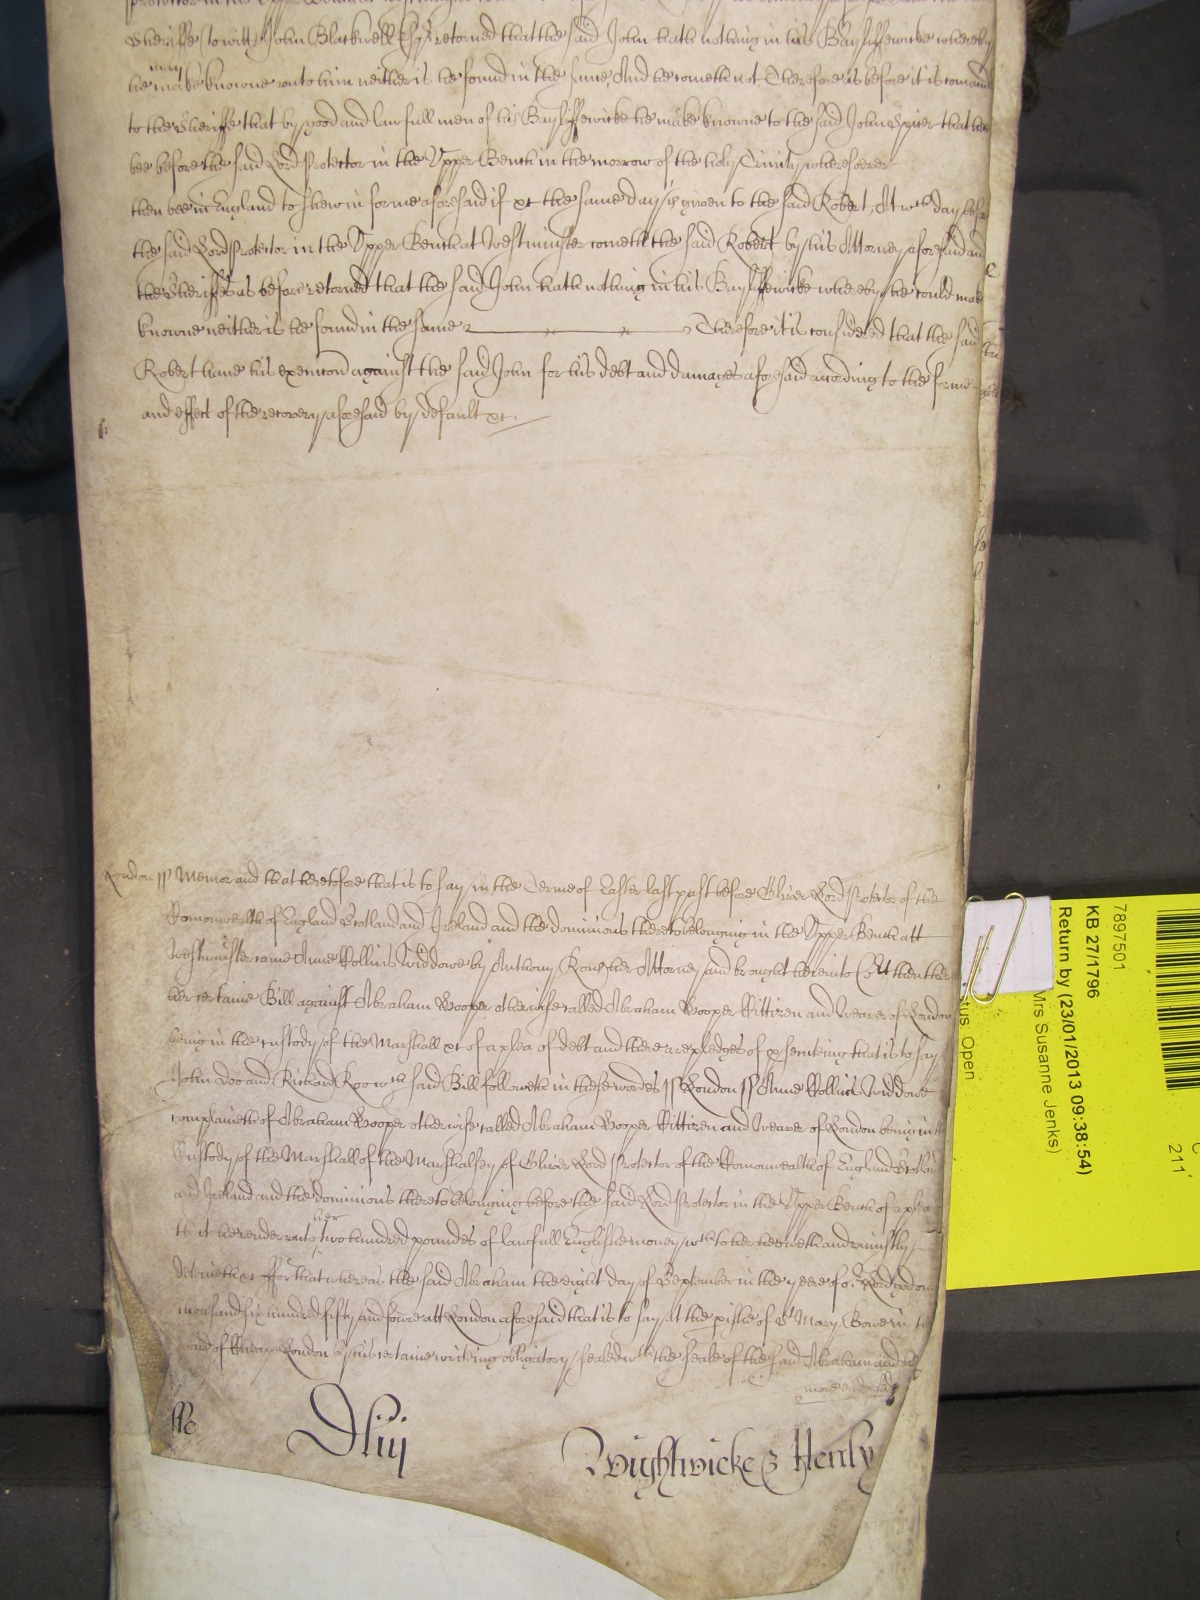 Sheriffe to witt John Blackwell Esqr retorned that the said John hath nothing in his Bayliffewicke whereby
he may make knowne unto him neither is he found in the same, And he cometh not Therefore as before it is comand
to the Sheriffe that by good and lawfull men of his Bayliffewicke he make knowne to the said John Spicer that he
bee before the said Lord Protector in the Upper Bench in the morrow of the holy Trinity wheresoever
then bee in England to shew in forme aforesaid if &c the same day is given to the said Robert, At wch day before
the said Lord Protector in the Upper Bench at Westminster cometh the said Robert by his Attorney aforesaid and
the Sheriffe as before retorned that the said John hath nothing in his Bayliffewicke whereby he could make
knowne neither is he found in the same Therefore it is considered that the said
Robert have his execucon against the said John for his debt and damages aforesaid according to the forme
and effect of the recovery aforesaid by default &c.
London ss Memorand that heretofore that is to say in the Terme of Easter last past before Oliver Lord Protector of the
Comonwealth of England Scotland and Ireland and the dominions thereto belonging in the Upper Bench att
Westminster came Anne Hollins Widdowe by Anthony Attorney and brought here into Court then there
her certaine Bill against Abraham Cooper otherwise called Abraham Cooper Cittizen and Weaver of London
being in the custody of the Marshall &c of a plea of debt and there are pledges of psenting that is to say
John Doo and Richard Roo wch said Bill followeth in these words ss London ss Anne Hollins Widdowe
complaineth of Abraham Cooper otherwise called Abraham Cooper Cittizen and Weaver of London being in the
Custody of the Marshall of the Marshalsey of Oliver Lord Protector of the Comonwealth of England Scotland
and Ireland and the dominions thereto belonging before the said Lord Protector in the Upper Bench of a plea
tht he render unto her two hundred poundes of lawfull English money wch to her he oweth and uniustly
deteineth &c ffor that whereas the said Abraham the eight day of September in the yeere of or Lord god one
thousand six hundred fifty and fowre att London aforesaid that is to say at the pishe of St Mary Bowe in the
ward of Cheape London by his certaine writing obligatory sealed wth the seale of the said Abraham and
Wightwicke & Henly
7897501
KB 27/1796
Return by (23/01/2013 09:38:54)
Mrs Susanne Jenks)
tus Open
211